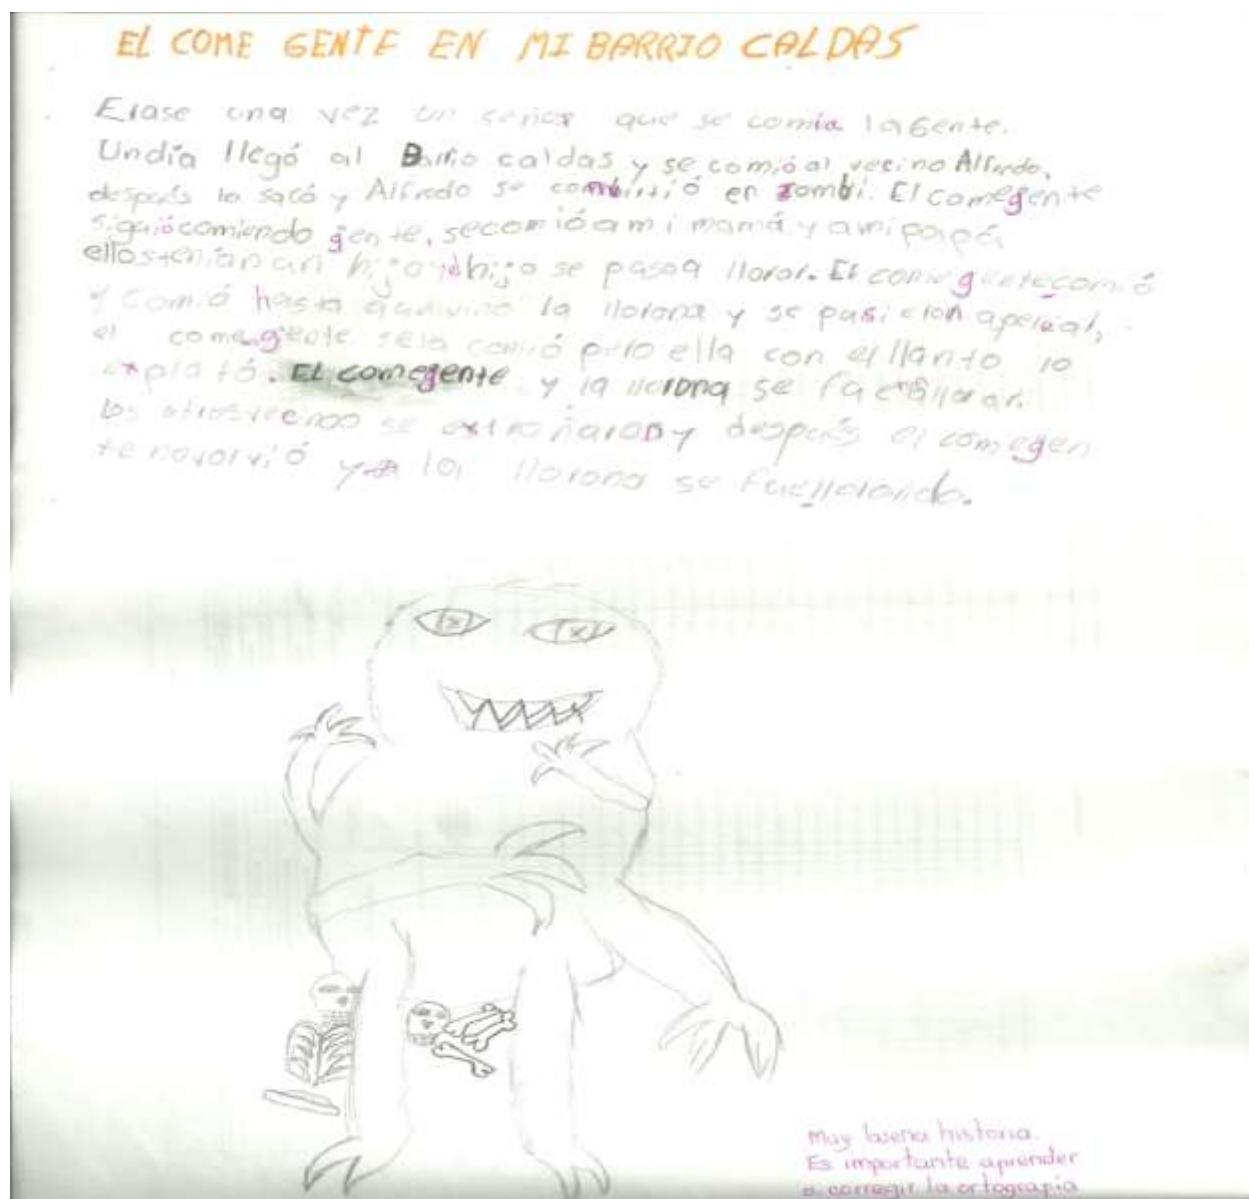 EL COME GENTE EN MI BARRIO CALDAS
Erase una vez un señor que se comia la Gente.
Undía llegó al Barrio caldas y se comió al vecino Alfredo,
después lo sacó y Alfredo se combirtió en zombi. El comegente
siguiócomiendo gente, secomióami mamá y amipapá
ellosteníanan hijo hijo se pasoa llorar. El comegentecomió
y comió hasta la llorona y se pusieron apeleal,
el comegente sela comió pero ella con el llanto lo
explotó. EL comegente y la llorona se fue allorar.
los otrosvecnos se extrañarony después el comegen
tenovolvió y la llorona se fuellorando.
Muy buena historia.
Es importante aprender
a corregir la ortografía